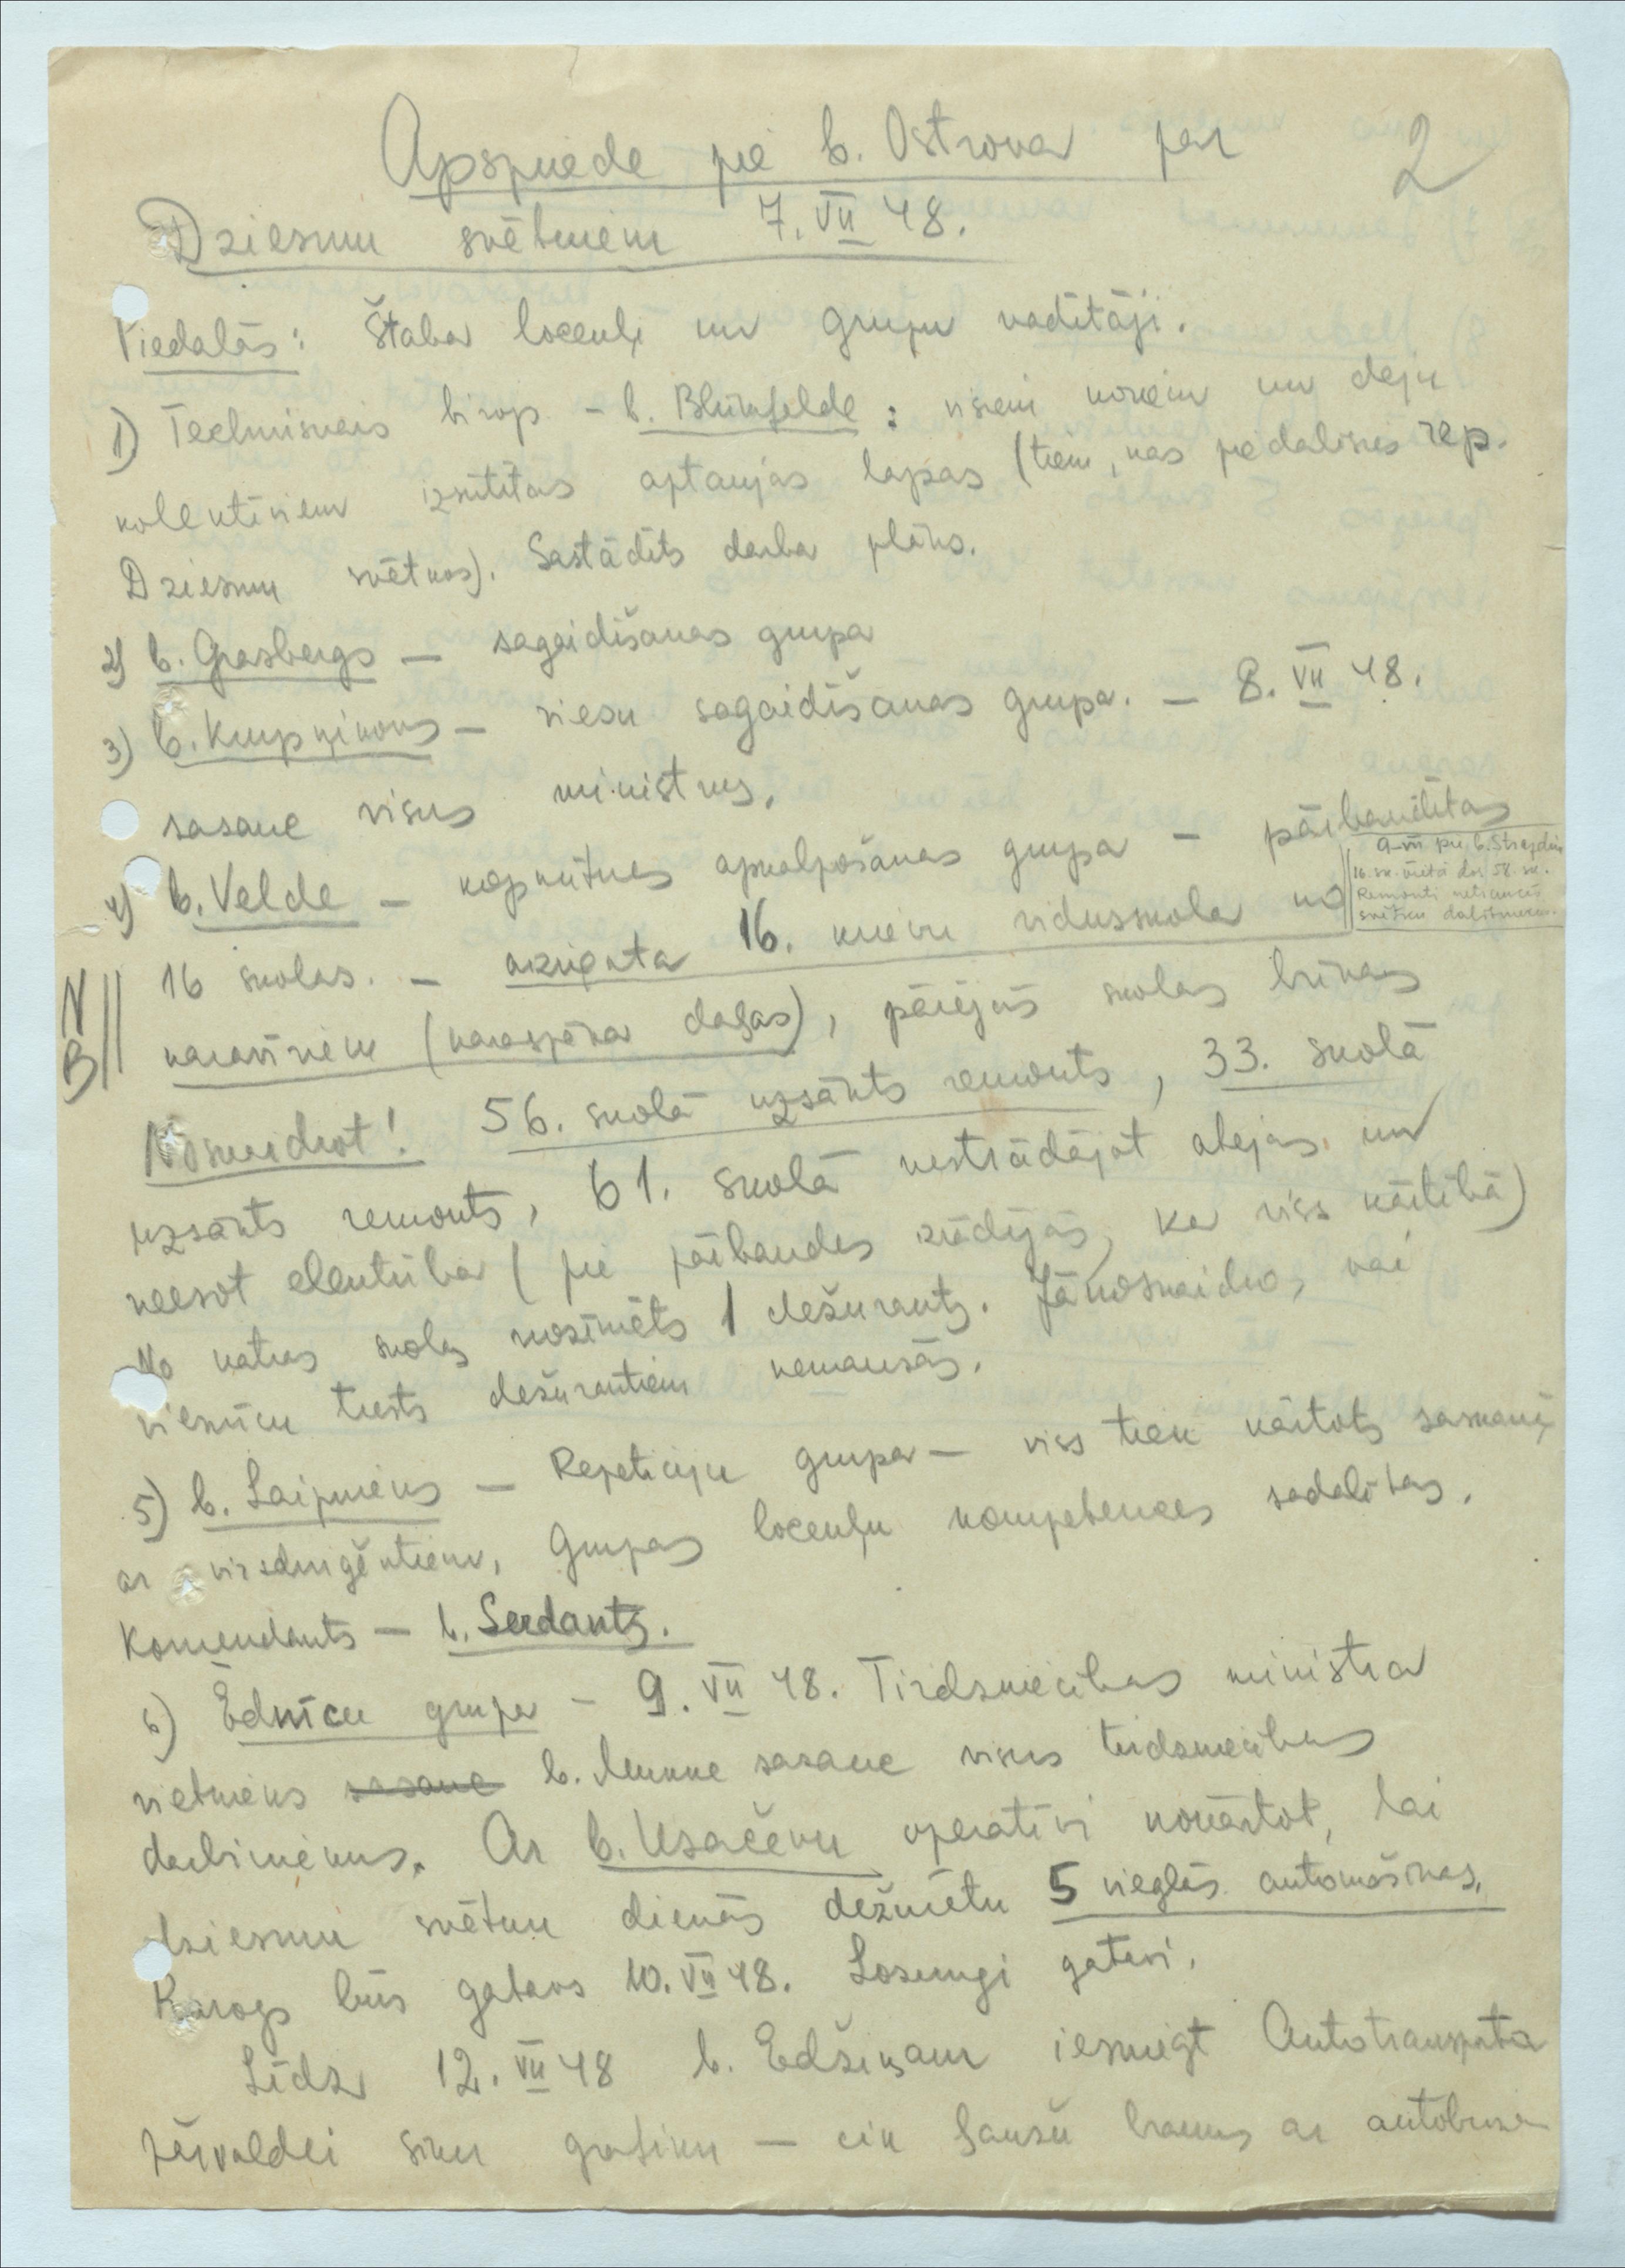 Apspriede pie b. Ostrova par
2
Dziesmu svētkiem 7. VII 48.
Piedalās: Štaba locekļi un grupu vadītāji.
1) Techniskais birojs – b. Blūmfelde: visiem koriem un deju
kolektīviem izsūtītas aptaujas lapas (tiem, kas piedalīsies rep.
Dziesmu svētkos). Sastādīts darba plāns.
2) b. Grasbergs – sagaidīšanas grupa
3) b. Krupņikovs – viesu sagaidīšanas grupa. – 8. VII 48.
sasauc visus ministrus.
4) b. Velde – kopmītnes apkalpošanas grupa – pārbaudītas
9. VII pie b. Strazdiņa
16. sk. vietā dos 58. sk.
Remonti netraucēs
svētku dalībniekus.
16 skolas. – aizņemta 16. krievu vidusskola no
NB
karavīriem (karaspēka daļas), pārējās skolas brīvas
Noskaidrot! 56. skolā uzsākts remonts, 33. skolā
uzsākts remonts, 61. skolā nestrādājot atejas un
neesot elektrība (pie pārbaudes izrādījās, ka viss kārtībā)
No katras skolas nozīmēts 1 dežurants. Jānoskaidro, vai
viesnīcu trests dežurantiem nemaksās.
5) b. Laipnieks – Repeticiju grupa – viss tiek kārtots saskaņā
ar virsdiriģentiem, Grupas locekļu kompetences sadalītas.
Komendants – b. Serdants.
6) Ēdnīcu grupa – 9. VII 48. Tirdzniecības ministra
vietnieks sasauc b. Munke sasauc visus tirdzniecības
darbiniekus. Ar b. Usačevu operatīvi nokārtot, lai
dziesmu svētku dienās dežurētu 5 vieglās automašīnas.
Karogs būs gatavs 10. VII 48. Lozungi gatavi.
Līdz 12. VII 48 b. Edžiņam iesniegt Autotransporta
pārvaldei sīku grafiku – cik ļaužu brauks ar autobusa